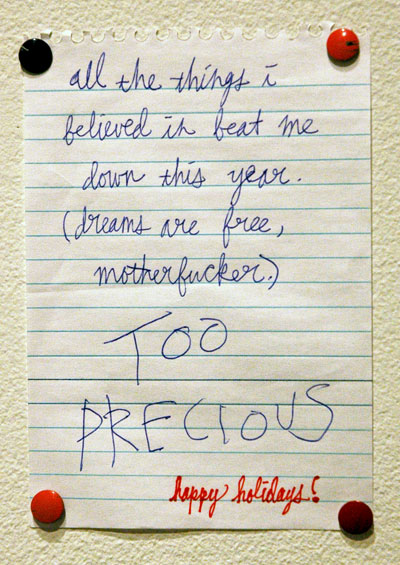 all the things i
believed in beat me
down this year.
(dreams are free,
motherfucker.)
TOO
PRECIOUS
happy holidays!